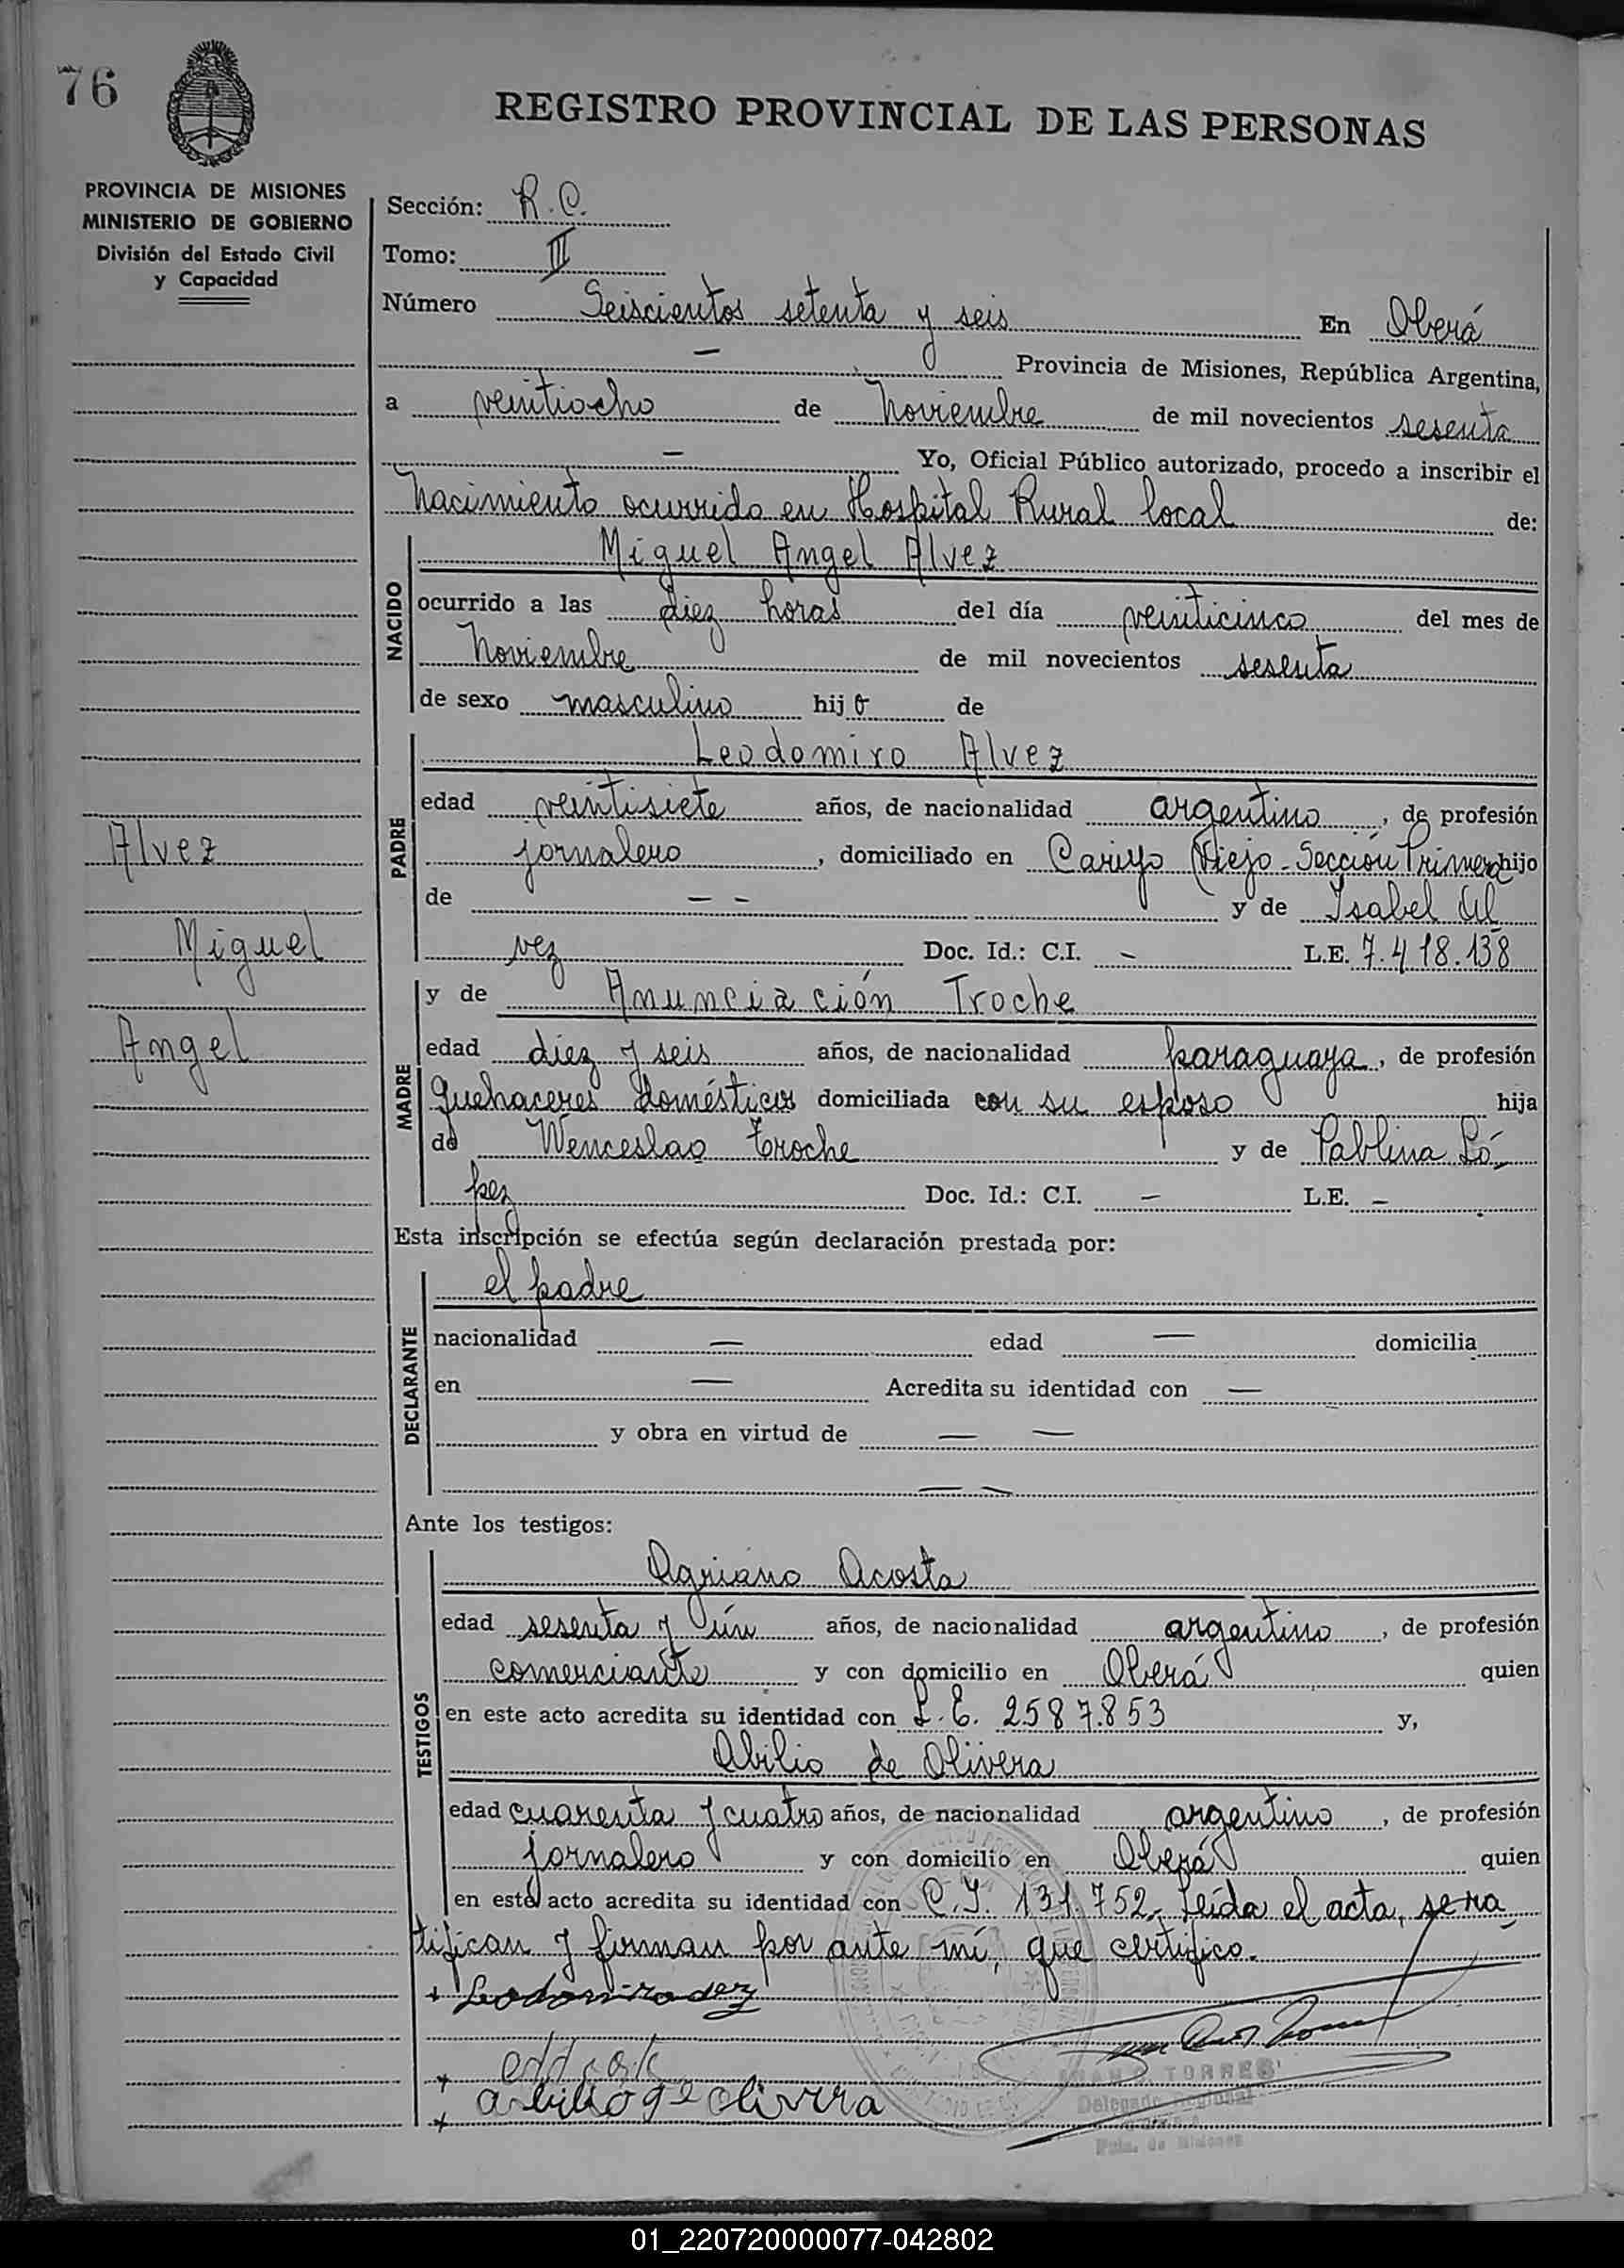 76
REGISTRO PROVINCIAL DE LAS PERSONAS
PROVINCIA DE MISIONES
MINISTERIO DE GOBIERNO
División del Estado Civil
y Capacidad
Sección: R.C.
Tomo: II
Número Seiscientos setenta y seis En Oberá
— Provincia de Misiones, República Argentina,
a veintiocho de Noviembre de mil novecientos sesenta
— Yo, Oficial Público autorizado, procedo a inscribir el
Nacimiento ocurrido en Hospital Rural local de:
NACIDO
Miguel Angel Alvez
ocurrido a las diez horas del día veinticinco del mes de
Noviembre de mil novecientos sesenta
de sexo masculino hijo de
PADRE
Leodomiro Alvez
edad veintisiete años, de nacionalidad argentino, de profesión
jornalero, domiciliado en Viejo - Sección Primera hijo
de — — y de Isabel Al
vez Doc. Id.: C.I. — L.E. 7.418.138
Alvez
Miguel
Angel
MADRE
y de Anunciación Troche
edad diez y seis años, de nacionalidad paraguaya, de profesión
quehaceres domésticos domiciliada con su esposo hija
de Wenceslao Troche y de Pablina Ló
pez Doc. Id.: C.I. — L.E. —
Esta inscripción se efectúa según declaración prestada por:
DECLARANTE
el padre
nacionalidad — edad — domicilia
en — Acredita su identidad con —
y obra en virtud de — —
— —
Ante los testigos:
TESTIGOS
Acosta
edad sesenta y ún años, de nacionalidad argentino, de profesión
comerciante y con domicilio en Oberá quien
en este acto acredita su identidad con L.E. 2587.853 y,
Abilio de Olivera
edad cuarenta y cuatro años, de nacionalidad argentino, de profesión
jornalero y con domicilio en Oberá quien
en este acto acredita su identidad con C.I. 131.752. Leída el acta, se ra
tifican y firman por ante mí, que certifico.
TORRES
Delegado Regional
Pcia. de Misiones
01_220720000077-042802